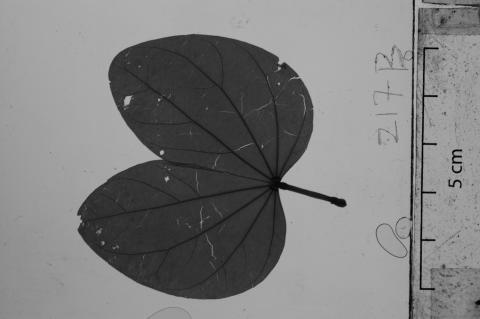 217 B
5 cm